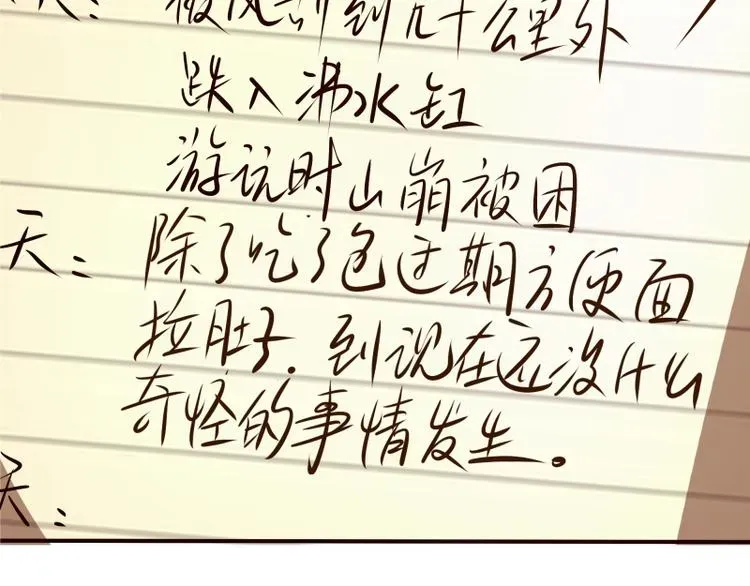 天：被风刮到几十公里外
跌入沸水缸
游玩时山崩被困
天：除了吃了包过期方便面
拉肚子．到现在还没什么
奇怪的事情发生。
天：